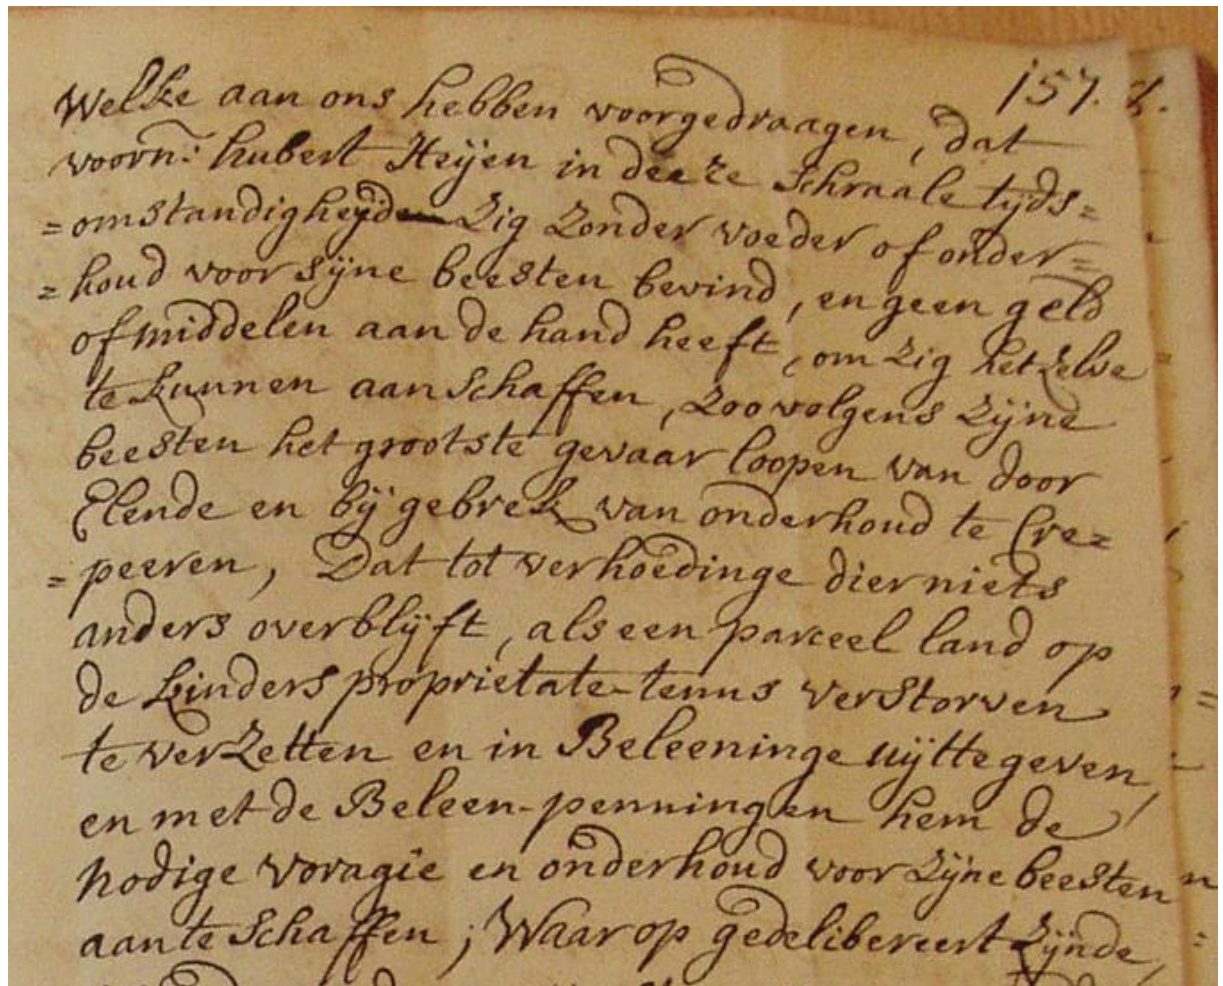 157.
Welke aan ons hebben voorgedraagen, dat
voorn: hubert Heijen in deeze schraale tijds=
=omstandigheijde zig zonder voeder of onder=
=houd voor sijne beesten bevind, en geen geld
of middelen aan de hand heeft, om zig het zelve
te kunnen aanschaffen, zoo volgens zijne
beesten het grootste gevaar loopen van door
Elende en bij gebrek van onderhoud te Cre=
=peeren, Dat tot verhoedinge dier niets
anders overblijft, als een parceel land op
de kinders proprietate-tenus verstorven
te verzetten en in Beleeninge uijt te geven,
en met de Beleen-penningen hem de
nodige voragie en onderhoud voor zijne beesten
aan te schaffen; Waar op gedelibereert zijnde,